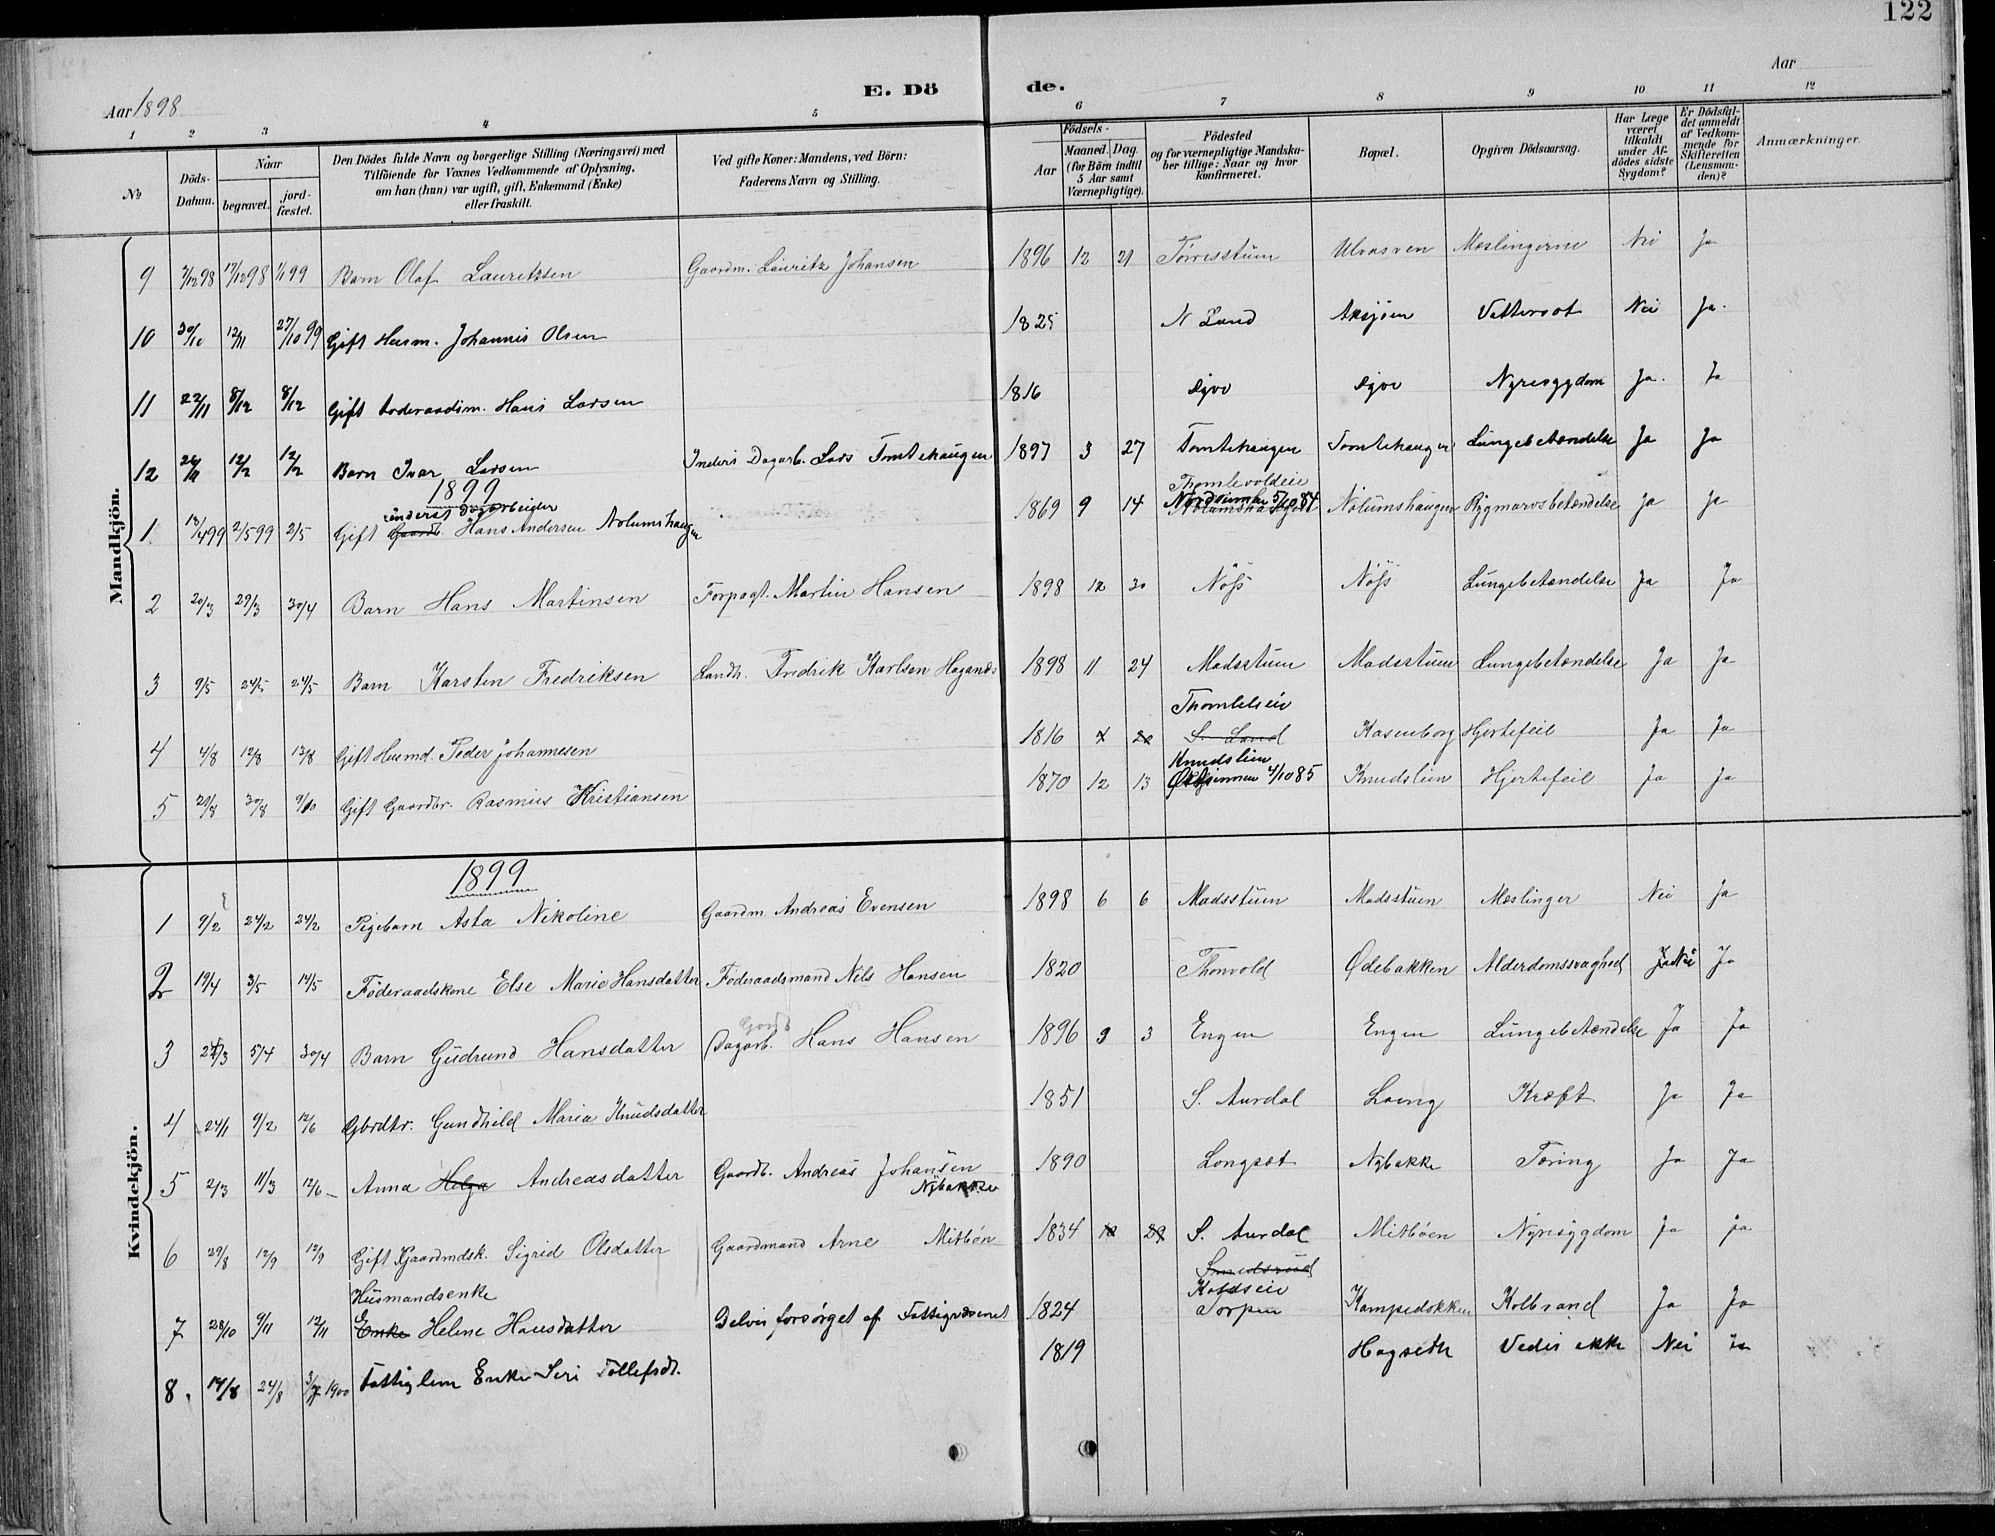 122
Aar 1898
E. Dö de.
Aar
1 2 3 4 5 6 7 8 9 10 11 12
№
Döds-Datum.
Naar
begravet.
jord-fæstet.
Den Dödes fulde Navn og borgerlige Stilling (Næringsvei) med
Tilföiende for Voxnes Vedkommende af Oplysning,
om han (hun) var ugift, gift, Enkemand (Enke)
eller fraskilt.
Ved gifte Koner: Mandens, ved Börn:
Faderens Navn og Stilling.
Födsels-
Aar
Maaned. Dag.
(for Börn indtil
5 Aar samt
Værnepligtige).
Födested
og for værnepligtige Mandska-
ber tillige: Naar og hvor
konfirmeret.
Bopæl.
Opgiven Dödsaarsag.
Har Læge
været
tilkaldt
under Af-
dödes sidste
Sygdom?
Er Dödsfal-
det anmeldt
af Vedkom-
mende for
Skifteretten
(Lensman-
den)?
Anmærkninger.
Mandkjön.
9 7/12 98 17/12 98 1/1 99 Barn Olaf Lauritzsen Gaardm. Lauritz Johansen 1896 12 21 Tørrisstuen Ulvasven Meslingerne Nei Ja
10 30/10 12/11 27/10 99 Gift Husm. Johannis Olsen 1825 N Land Aksjøen Vattersot Nei Ja.
11 22/11 8/12 8/12 Gift Foderaadsm. Hans Larsen 1816 Nyresygdom Ja. Ja
12 12/2 12/2 Barn Ivar Larsen Inders Dagarb. Lars Tomtehaugen 1897 3 27 Tomtehaugen Tomtehaugen Lungebetændelse Ja Ja
1899
inderst Dagarbeider Thomlevoldeie
1 13/4 99 2/5 99 2/5 Gift Gaardb. Hans Andersen Nolumshaugen 1869 9 14 Nordsinnen 5/10 84 Nolumshaugen Rygmarvsbetændelse Ja Ja
2 20/3 29/3 30/4 Barn Hans Martinsen Forpagt. Martin Hansen 1898 12 30 Nøss Nøss Lungebetændelse Ja Ja
3 9/5 24/5 24/5 Barn Karsten Fredriksen Landh. Fredrik Karlsen Haganæs 1898 11 24 Madsstuen Madsstuen Lungebetændelse Ja Ja
Thomleleie
4 4/8 12/8 13/8 Gift Husmd. Peder Johannesen 1816 S. Land Kasenborg Hjertefeil Ja Ja
Knudslien
5 21/8 30/8 9/10 Gift Gaardbr. Rasmus Kristiansen 1870 12 13 Østsinnen 4/10 85 Knudslien Hjertefeil Ja Ja
Kvindekjön.
1899
1 9/2 24/2 24/2 Pigebarn Asta Nikoline Gaardm. Andreas Evensen 1898 6 6 Madsstuen Madsstuen Meslinger Nei Ja
2 19/4 3/5 14/5 Føderaadskone Else Marie Hansdatter Føderaadsmand Nils Hansen 1820 Thonvold Ødebakken Alderdomssvaghed Ja Nei Ja
Gaardb
3 5/4 30/4 Barn Gudrund Hansdatter Dagarb. Hans Hansen 1896 3 3 Engen Engen Lungebetændelse Ja Ja
4 24/1 9/2 12/6 Gbrdtr. Gundhild Maria Knudsdatter 1851 S. Aurdal Loeng Kræft Ja Ja
5 2/3 11/3 12/6 Anna Helga Andreasdatter Gaardb. Andreas Johansen 1890 Longset Nybakke Tæring Ja Ja
Nybakke
6 29/8 12/9 12/9 Gift Gaardmdsk. Sigrid Olsdatter Gaardmand Arne Mitbøn 1834 12 29 S. Aurdal Mitbøen Nyresygdom Ja Ja
Smedsrud
Husmandsenke Koldseie
7 28/10 9/11 12/11 Enke Helene Hansdatter Delvis forsørget af Fattigvæsenet 1824 Torpen Kampedokken Kolbrand Ja Ja
8. 14/8 24/8 3/7 1900 Fattiglem Enke Siri Tollefsdt. 1819 Hagseth Vedis ikke Nei Ja